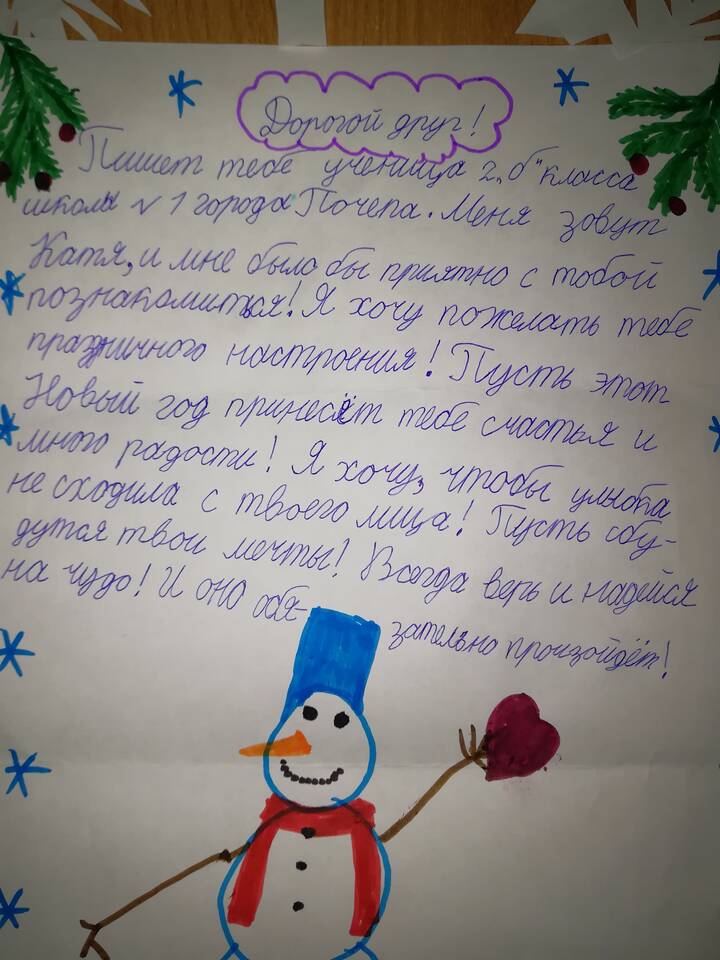 Дорогой друг!
Пишет тебе ученица 2 „б" класса
школы №1 города Почепа. Меня зовут
Катя, и мне было бы приятно с тобой
познакомиться! Я хочу пожелать тебе
праздничного настроения! Пусть этот
Новый год принесёт тебе счастья и
много радости! Я хочу, чтобы улыбка
не сходила с твоего лица! Пусть сбу-
дутся твои мечты! Всегда верь и надейся
на чудо! И оно обя- зательно произойдёт!